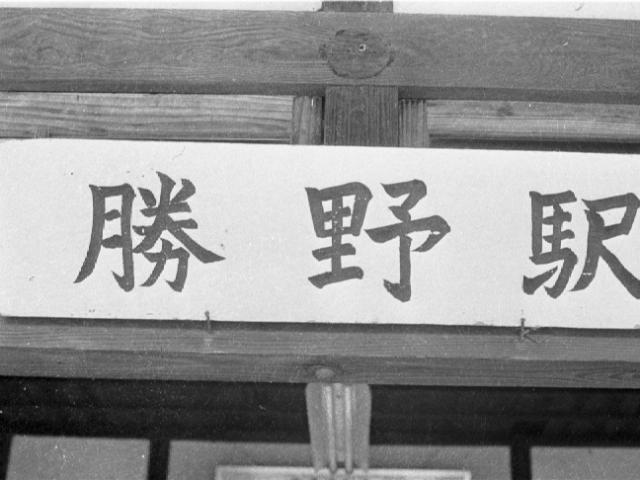 勝野駅